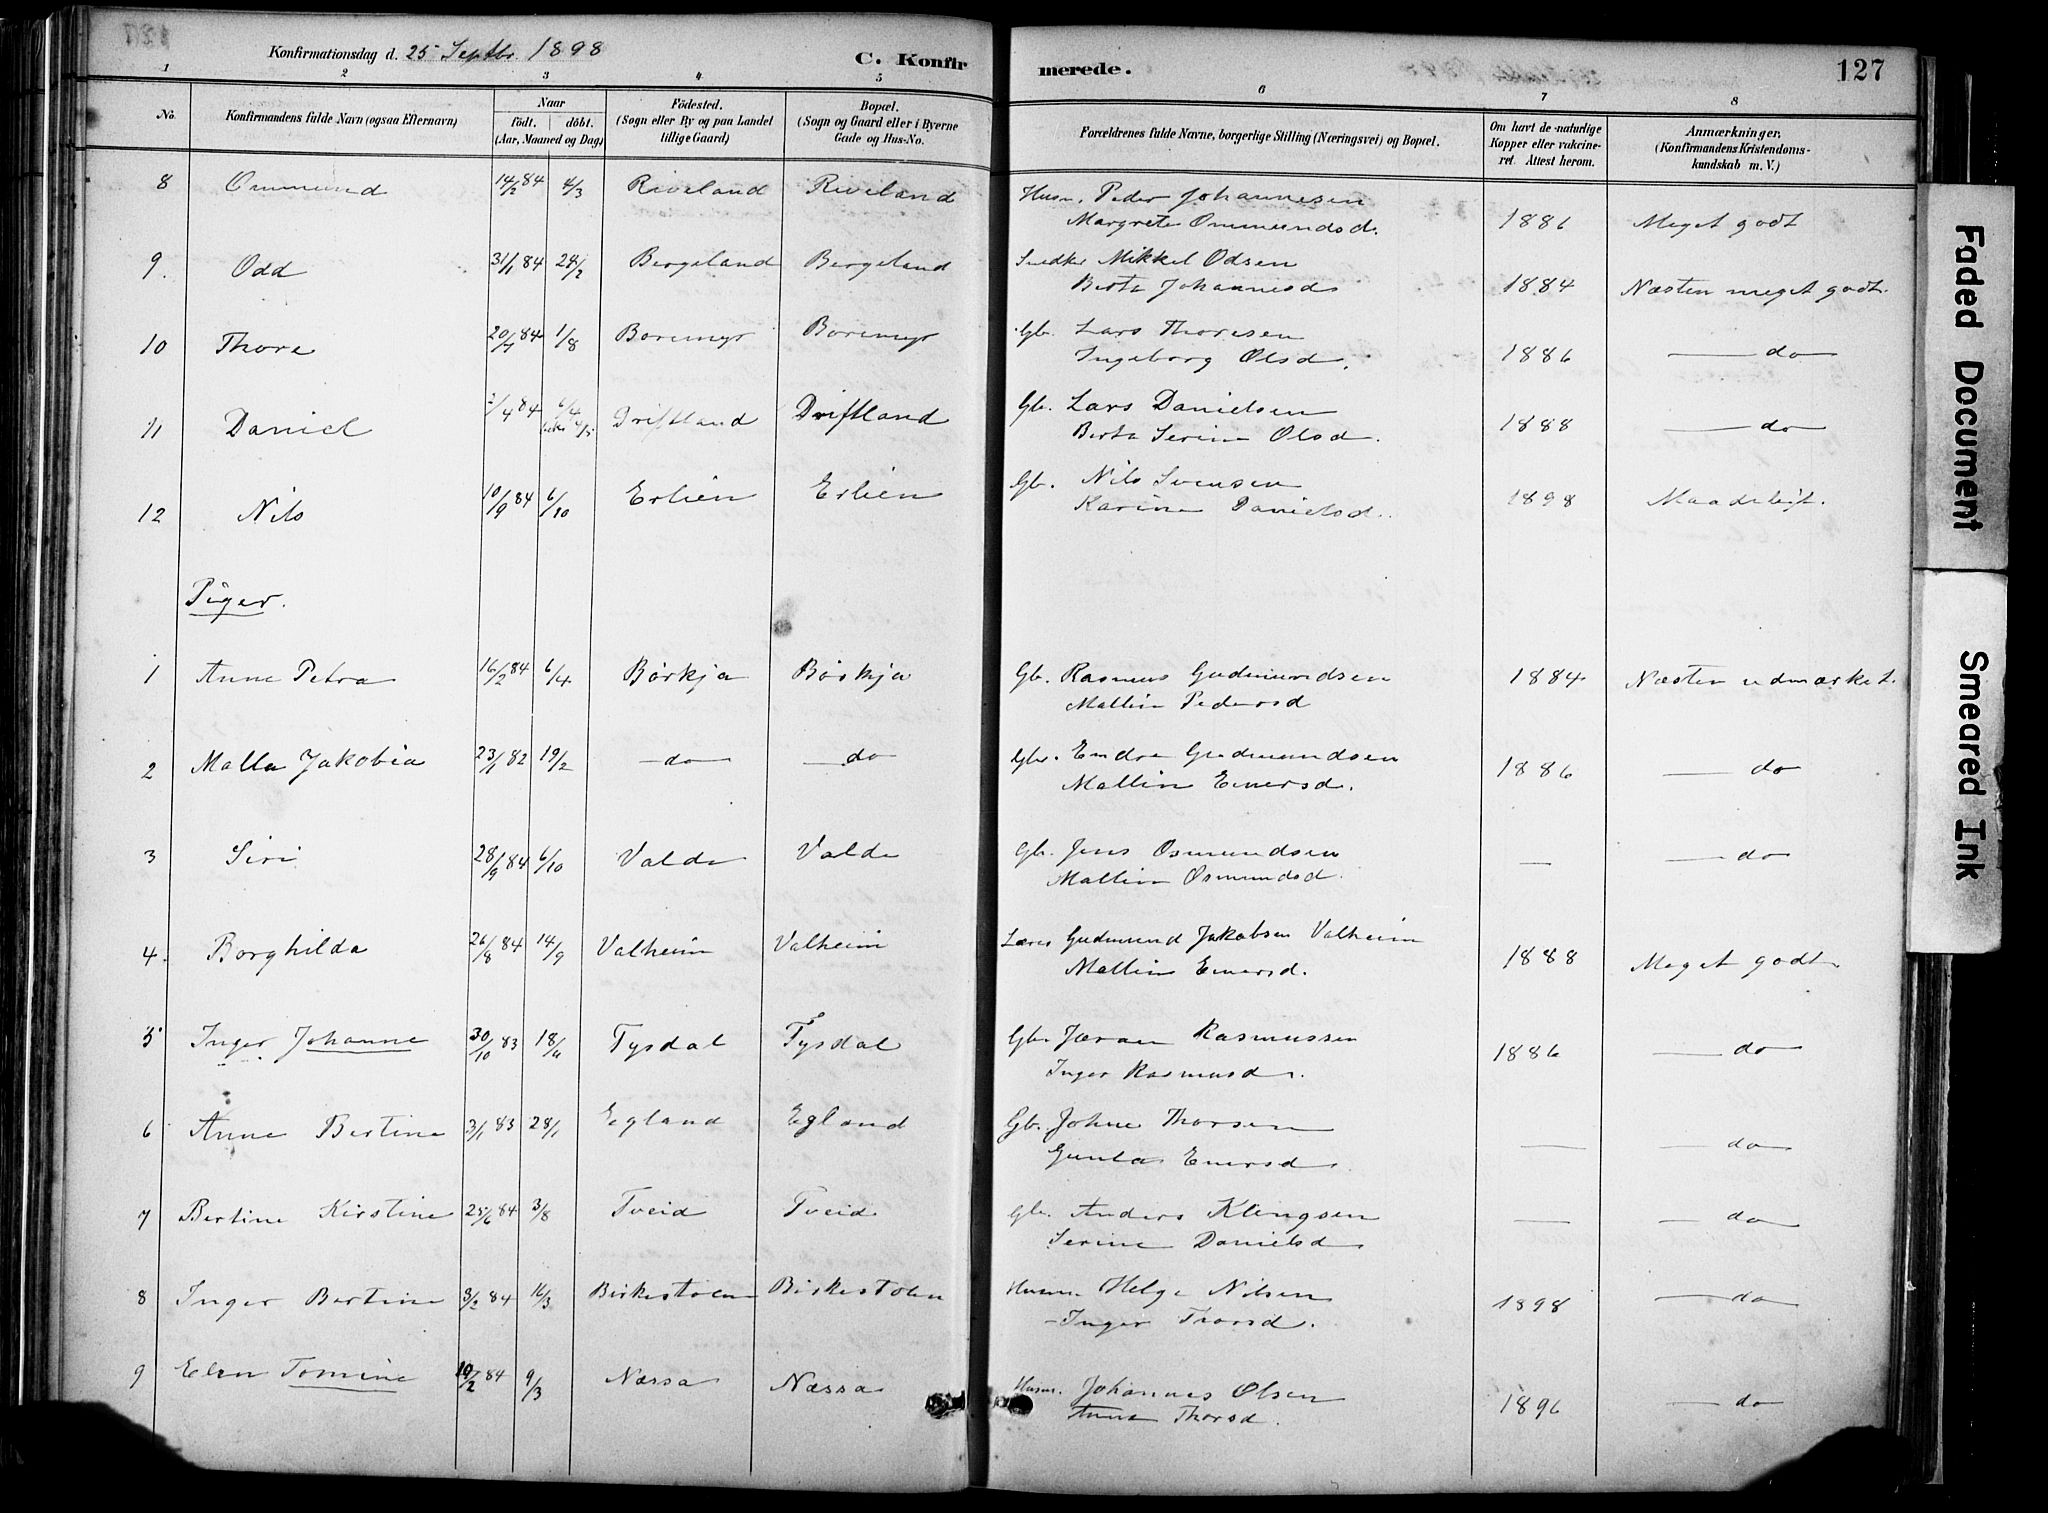 Konfirmationsdag d. 25 Septbr. 1898 C. Konfirmerede. 127
1 2 3 4 5 6 7 8
No. Konfirmandens fulde Navn (ogsaa Efternavn) Naar født. døbt. (Aar, Maaned og Dag) Fødested. (Sogn eller By og paa Landet tillige Gaard) Bopæl. (Sogn og Gaard eller i Byerne Gade og Hus-No. Forældrenes fulde Navne, borgerlige Stilling (Næringsvei) og Bopæl. Om havt de naturlige Kopper eller vakcineret. Attest herom. Anmærkninger. (Konfirmandens Kristendomskundskab m. V.)
8 Ommund 14/2 84 4/3 Riveland Riveland Husm. Peder Johannesen
Margrete Ommundsd. 1886 Meget godt
9. Odd 31/1 84 28/2 Bergeland Bergeland Snedker Mikkel Odsen
Berta Johannesd 1884 Næsten meget godt.
10 Thore 20/7 84 1/8 Boremyr Boremyr Gb. Lars Thoresen
Ingeborg Olsd. 1886 — do
11 Daniel 2/4 84 6/4 4/5 Driftland Driftland Gb. Lars Danielsen
Berta Serine Olsd. 1888 — do
12 Nils 10/9 84 6/10 Erlien Erlien Gb. Nils Svensen
Karine Danielsd. 1898 Maadeligt.
Piger.
1 Anne Petra 16/2 84 6/4 Børkja Børkja Gb. Rasmus Gudmundsen
Mallin Pedersd 1884 Næsten udmærket.
2 Malla Jakobia 23/1 82 19/2 — do — do Gbr. Endre Gudmundsen
Mallin Enersd. 1886 — do
3 Siri 28/9 84 6/10 Valde Valde Gb. Jens Osmundsen
Mallin Osmundsd. — — do
4. Borghilda 26/8 84 14/9 Valheim Valheim Lærer Gudmund Jakobsen Valheim
Mallin Enersd. 1888 Meget godt.
5 Inger Johanne 30/10 83 18/11 Tysdal Tysdal Gb. Jøran Rasmussen
Inger Rasmusd. 1886 — do
6 Anne Bertine 3/1 83 28/1 Egland Egland Gb. Johne Thorsen
Gunla Enersd. — — do
7 Bertine Kirstine 25/6 84 3/8 Tveid Tveid Gb. Anders Klengsen
Serine Danielsd — — do
8 Inger Bertine 3/2 84 16/3 Birkestolen Birkestolen Husm. Helge Nilsen
Inger Thorsd. 1898 — do
9 Elen Tomine 10/2 84 9/3 Næssa Næssa Husm. Johannes Olsen
Anna Thorsd. 1896 — do
Faded Document
Smeared Ink